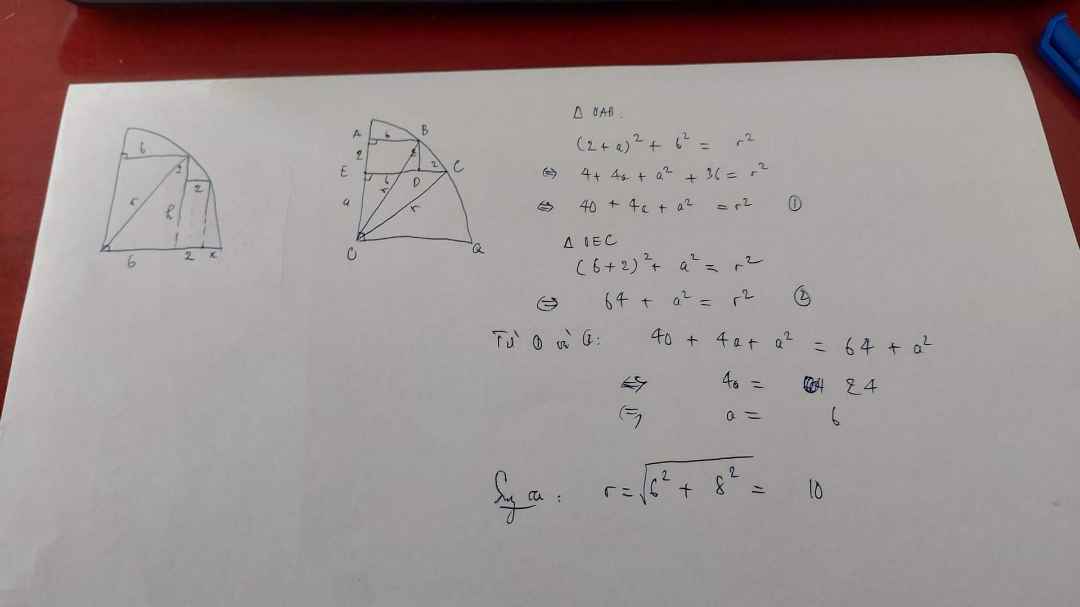 6
2
2
r
h
6
2
x
A
6
B
2
2
E
2
C
6
D
a
r
r
O
Q
Δ OAB.
(2 + a)² + 6² = r²
⇔ 4 + 4a + a² + 36 = r²
⇔ 40 + 4a + a² = r² ①
Δ OEC
(6+2)² + a² = r²
⇔ 64 + a² = r² ②
Từ ① và ②: 40 + 4a + a² = 64 + a²
⇔ 4a = 24
⇔ a = 6
Suy ra : r = √6² + 8² = 10